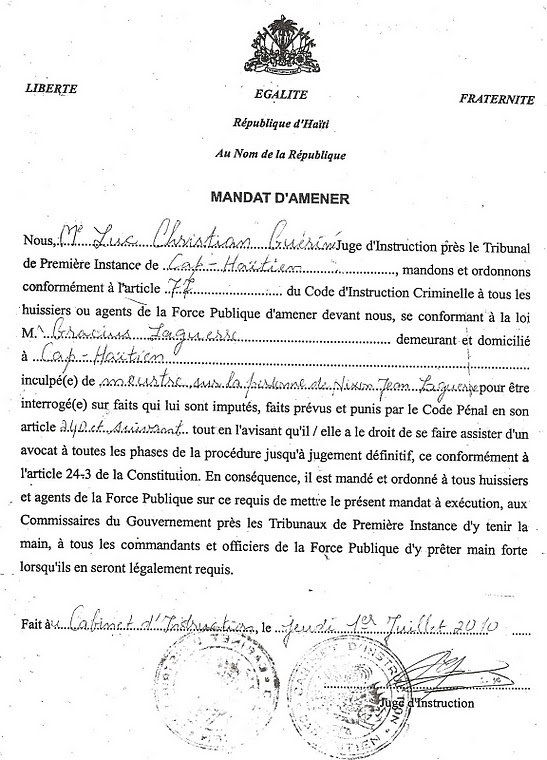 LIBERTE
EGALITE
FRATERNITE
République d'Haïti
Au Nom de la République
MANDAT D'AMENER
Nous, Me Luc Christian Guérin Juge d'Instruction près le Tribunal
de Première Instance de Cap-Haïtien, mandons et ordonnons
conformément à l'article 77 du Code d'Instruction Criminelle à tous les
huissiers ou agents de la Force Publique d'amener devant nous, se conformant à la loi
M. Gracius Laguerre demeurant et domicilié
à Cap-Haïtien
inculpé(e) de meurtre sur la personne de Nixon Jean Laguerre pour être
interrogé(e) sur faits qui lui sont imputés, faits prévus et punis par le Code Pénal en son
article 240 et suivant tout en l'avisant qu'il / elle a le droit de se faire assister d'un
avocat à toutes les phases de la procédure jusqu'à jugement définitif, ce conformément à
l'article 24-3 de la Constitution. En conséquence, il est mandé et ordonné à tous huissiers
et agents de la Force Publique sur ce requis de mettre le présent mandat à exécution, aux
Commissaires du Gouvernement près les Tribunaux de Première Instance d'y tenir la
main, à tous les commandants et officiers de la Force Publique d'y prêter main forte
lorsqu'ils en seront légalement requis.
Fait au Cabinet d'Instruction, le jeudi 1er Juillet 2010
CABINET D'INSTRUCTION
Juge d'Instruction